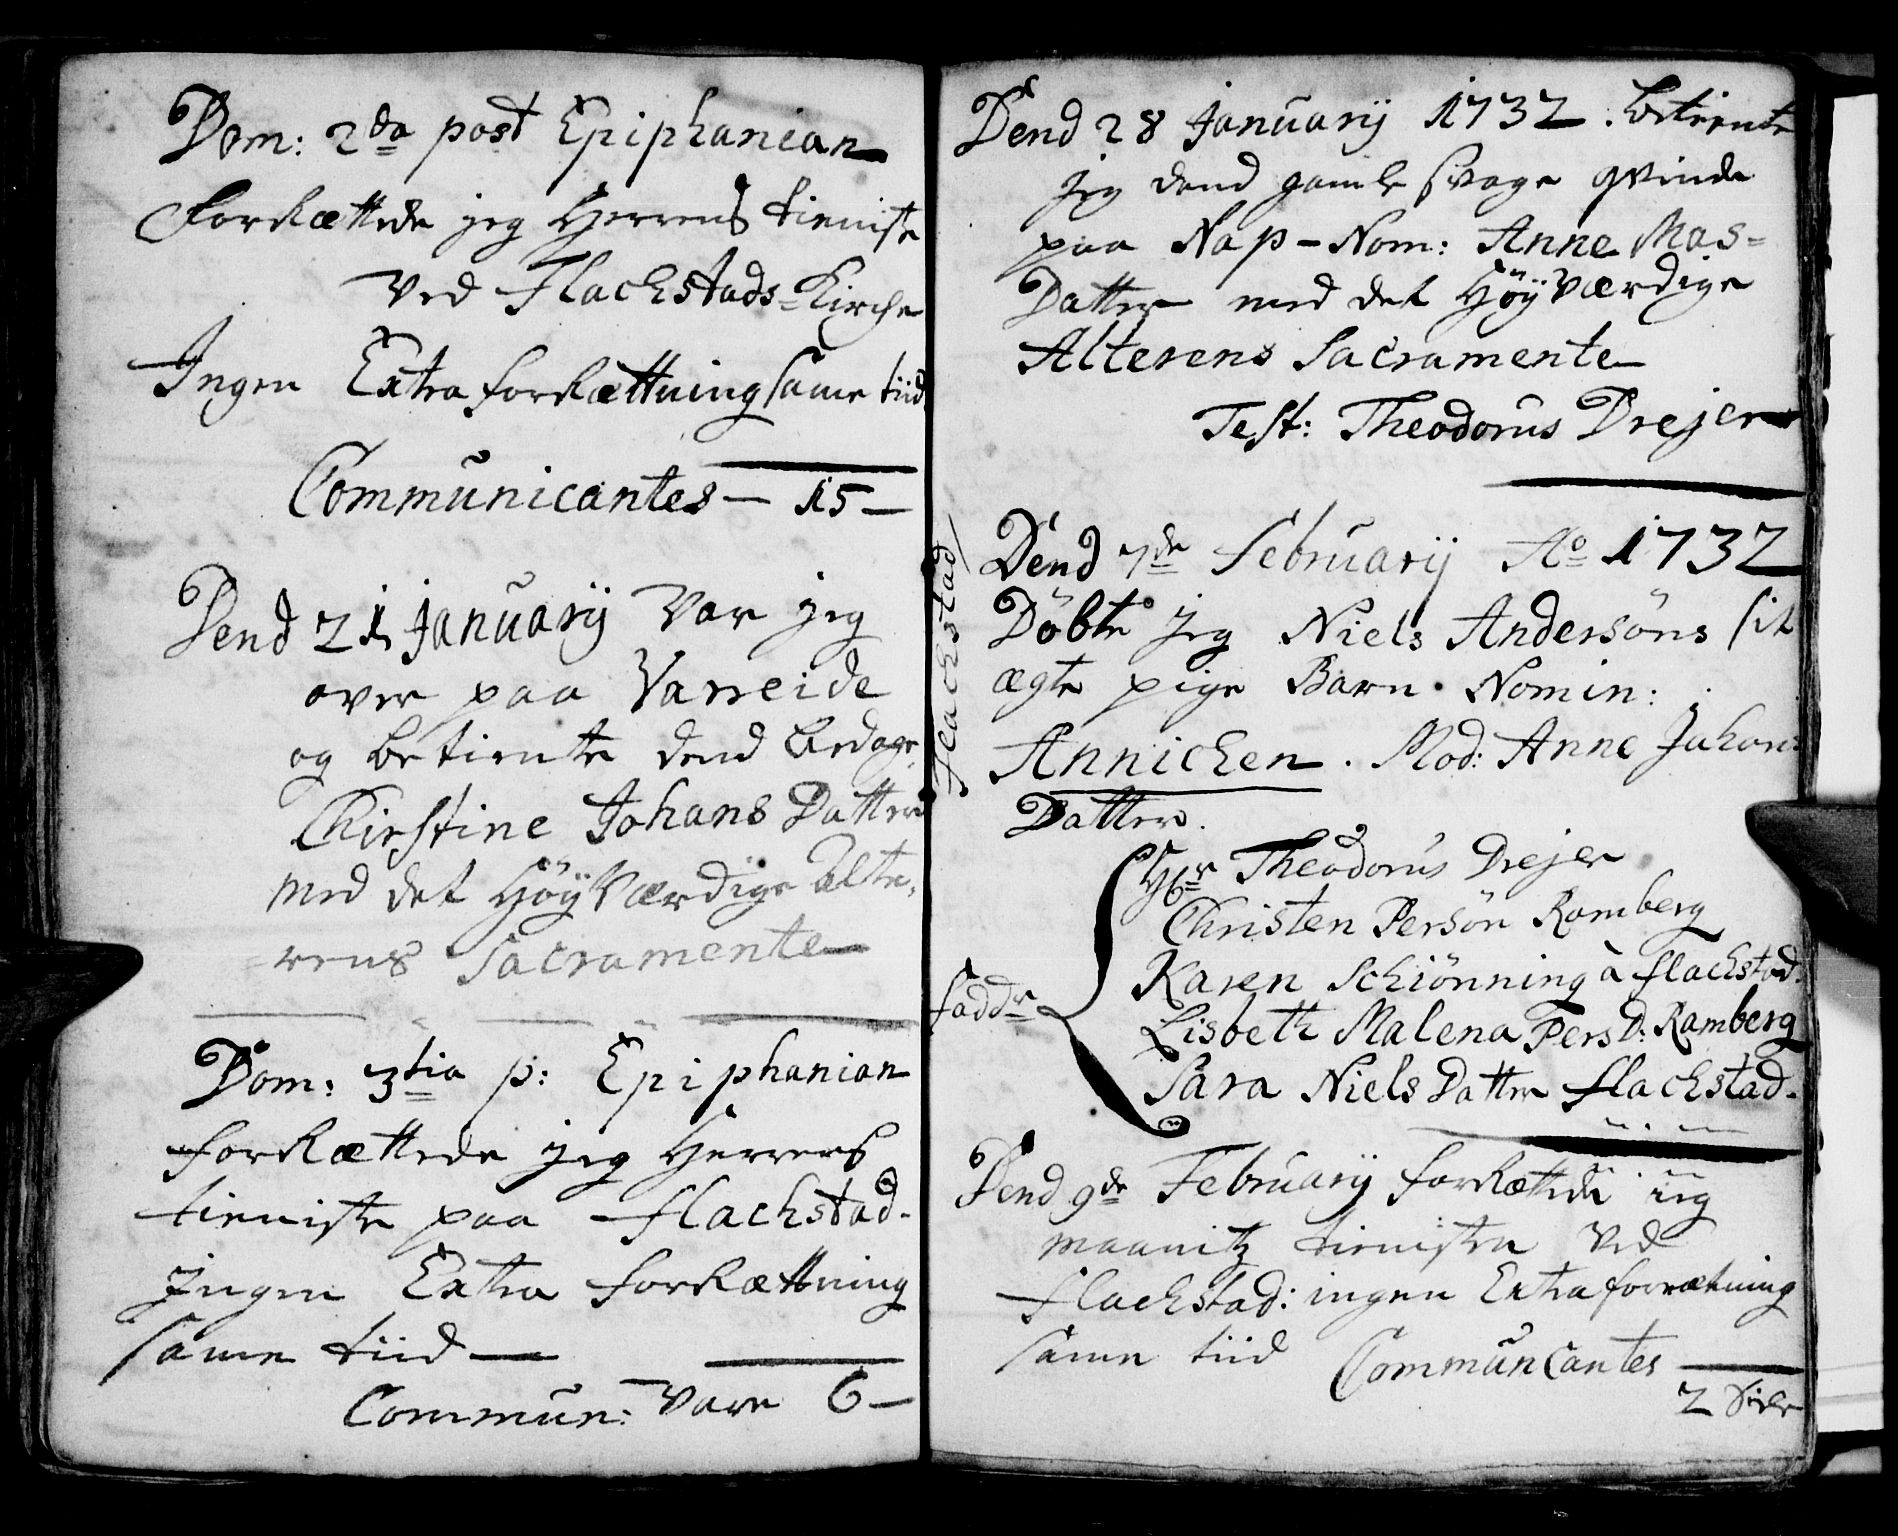 Dom: 2da post Epiphanian
forRættede jeg Herrens tieniste
ved Flachstads-Kirche
Ingen Extra forRættning same tiid
Communicantes — 15 —
Dend 21 Januarij var jeg
over paa Vareide
og betiente dend bedage,
Chirstine Johans Datter
med det HøyVærdige Alte,
rens Sacramente
Dom: 3tia p: Epiphanian
forRættede jeg Herrens
tieniste paa flachstad.
Ingen Extra forRættning
same tiid —
Commun: vare 6 —
Dend 28 Januarij 1732. betiente
jeg dend gamle svage qvinde
paa Nap - Nom: Anne Mas=
Datter med det HøyVærdige
Alterens Sacramente
Test: Theodorus Drejer
flachstad
Dend 7de February Ao 1732
Döbte jeg Niels Andersöns sit
ægte pige Barn. Nomin:
Annichen. Mod: Anne Johan:
Datter.
faddr
Hr Theodorus Drejer
Christen Persön Ramberg
Karen Schiönning à flachstad.
Lisbeth Malena Pers D: Ramberg
Sara Niels Datter flachstad.
Dend 9de February forRættede ieg
maanitz tienisten ved
flachstad: ingen Extra forrætning
same tiid Communcantes
2 Siele